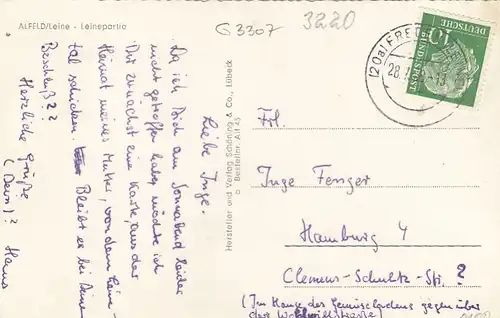 ALFELD/Leine - Leinepartie
G3307
3220
Liebe Inge.
Da ich Dich am Sonnabend leider
nicht getroffen habe, möchte ich
Dir zunächst eine Karte aus der
Heimat meiner Mutter, von dem Leine-
tal schicken. Bleibt es bei Deinem
Beschluß??
Herzliche Grüße
(Dein)? Hans
Hersteller und Verlag Schöning & Co., Lübeck
Bestellnr. Alf 45
DEUTSCHE
BUNDESPOST
10
(20a) FREDEN
28.
Frl.
Inge Fenger
Hamburg 4
Clemens-Schultz-Str. ?
(Im Hause des Gemüseladens gegenüber
der Wohlwillstrasse)